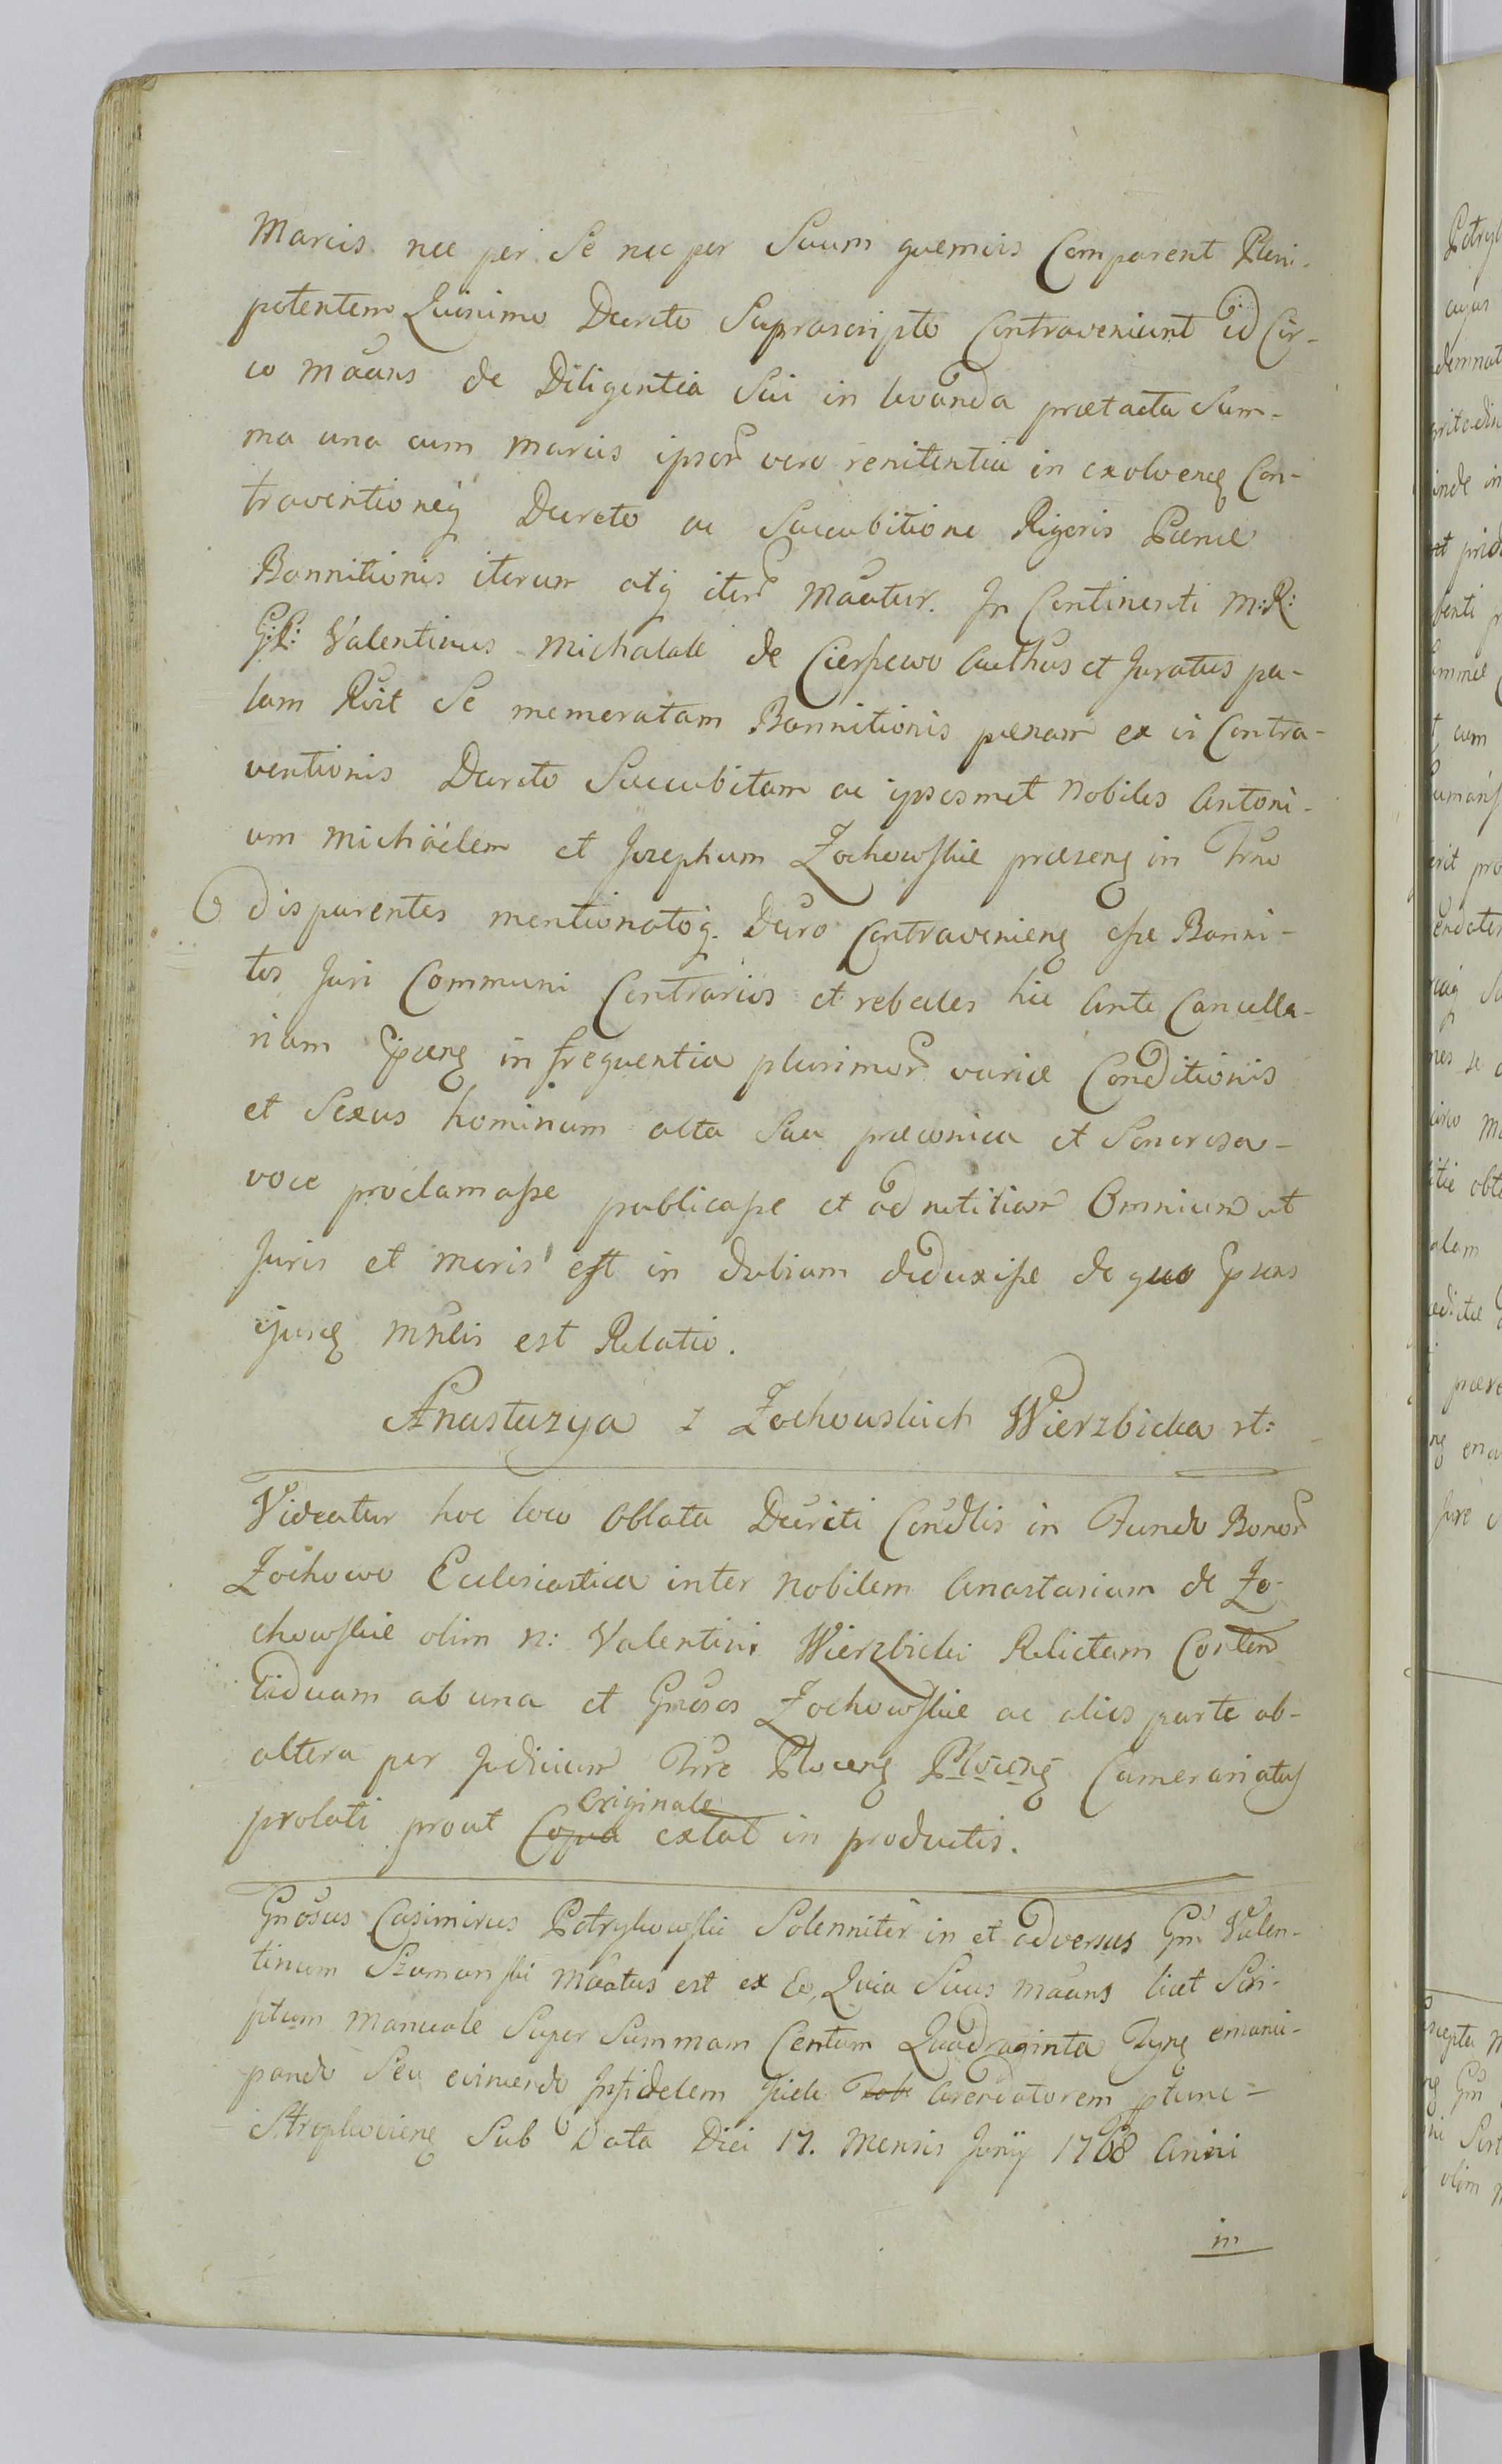 Marcis nec per Se nec per Suum quemvis Comparent Pleni-
potentem Quinimo Decreto Suprascripto Contraveniunt id Cir-
co Māans de Diligentia Sui in levanda prætacta Sum-
ma una cum Marcis ipsor vero renitentia in exolvenq Con-
traventioneq Decreto ac Succubitione Rigoris Pœnæ
Bannitionis iterum atq iter Māatur. In Continenti M:R:
G:R: Valentinus Michalak de Cierszewo Authus et Juratus pa-
lam Rūit Se memoratam Bannitionis pœnam ex vi Contra-
ventionis Decreto Succubitam ac ipsosmet Nobiles Antoni-
um Michäelem et Josephum Zochowskie præsenq in Trno
disparentes mentionatoq. Decro Contravenienq esse Banni-
tos Juri Communi Contrarios et rebelles hic Ante Cancella-
riam in frequentia plurimor variæ Conditionis
et Sexus hominum alta Sua præconica et Sonorosa-
voce proclamasse publicasse et ad notitiam Omnium ut
Juris et moris est in dubiam deduxisse de quo
ejusq Mnlis est Relatio.
Anastazya z Zochowskich Wierzbicka rt:
Videatur hoc loco Oblata Decreti Condlis in Fundo Bonor
Zochowo Ecclesiastica inter Nobilem Anastasiam de Zo-
chowskie olim N: Valentini Wierzbicki Relictam Conten
viduam ab una et Gnosos Zochowskie ac alios parte ab-
altera per Judicium Trre Plocenq Plocenq Camerariatus
prolati prout Copia Originale extat in productis.
Gnosus Casimirus Petrykowski Solenniter in et adversus Gm Valen-
tinum Szumanski Māatus est ex Eo, Quia Suus Māans licet Scri-
ptum Manuale Super Summam Centum Quadraginta Tynq emanci-
pando Seu evincendo Infidelem Arendatorem ptunc-
Sub Data Diei 17. Mensis Junij 1768 Anni
in